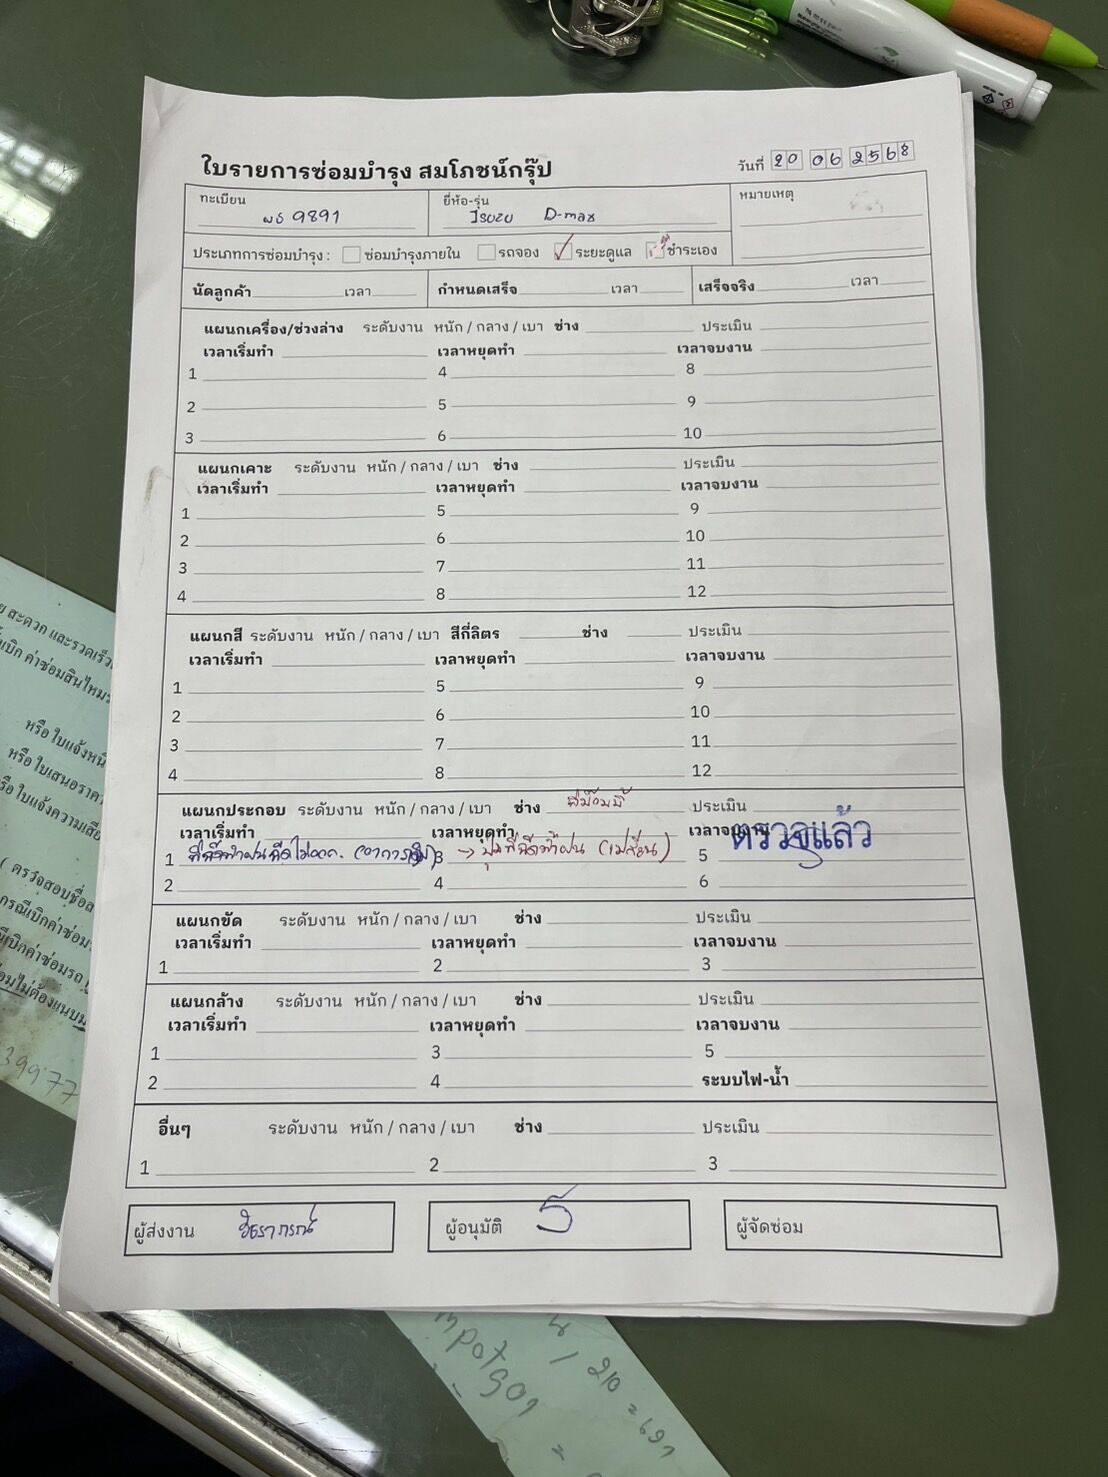 ใบรายการซ่อมบำรุง สมโภชน์กรุ๊ป
วันที่ 20 06 2568
ทะเบียน 9891
ยี่ห้อ-รุ่น Isuzu D-max
หมายเหตุ
ประเภทการซ่อมบำรุง : ซ่อมบำรุงภายใน รถจอง ระยะดูแล ชำระเอง
นัดลูกค้า เวลา กำหนดเสร็จ เวลา เสร็จจริง เวลา
แผนกเครื่อง/ช่วงล่าง ระดับงาน หนัก / กลาง / เบา ช่าง ประเมิน
เวลาเริ่มทำ เวลาหยุดทำ เวลาจบงาน
1 4 8
2 5 9
3 6 10
แผนกเคาะ ระดับงาน หนัก / กลาง / เบา ช่าง ประเมิน
เวลาเริ่มทำ เวลาหยุดทำ เวลาจบงาน
1 5 9
2 6 10
3 7 11
4 8 12
แผนกสี ระดับงาน หนัก / กลาง / เบา สีกี่ลิตร ช่าง ประเมิน
เวลาเริ่มทำ เวลาหยุดทำ เวลาจบงาน
1 5 9
2 6 10
3 7 11
4 8 12
แผนกประกอบ ระดับงาน หนัก / กลาง / เบา ช่าง ประเมิน
เวลาเริ่มทำ เวลาหยุดทำ เวลาจบงาน ตรวจแล้ว
1 ฉีดไม่ออก 3 → (เปลี่ยน) 5
2 4 6
แผนกขัด ระดับงาน หนัก / กลาง / เบา ช่าง ประเมิน
เวลาเริ่มทำ เวลาหยุดทำ เวลาจบงาน
1 2 3
แผนกล้าง ระดับงาน หนัก / กลาง / เบา ช่าง ประเมิน
เวลาเริ่มทำ เวลาหยุดทำ เวลาจบงาน
1 3 5
2 4 ระบบไฟ-น้ำ
อื่นๆ ระดับงาน หนัก / กลาง / เบา ช่าง ประเมิน
1 2 3
ผู้ส่งงาน
ผู้อนุมัติ
ผู้จัดซ่อม
สะดวก และรวดเร็ว
เบิก ค่าซ่อมสินไหม
หรือ ใบแจ้งหนี้
หรือ ใบเสนอราคา
ใบแจ้งความเสีย
( ตรวจสอบชื่อ
กรณีเบิกค่าซ่อม
เบิกค่าซ่อมรถ
ไม่ต้องแนบ
39977
210
= 697